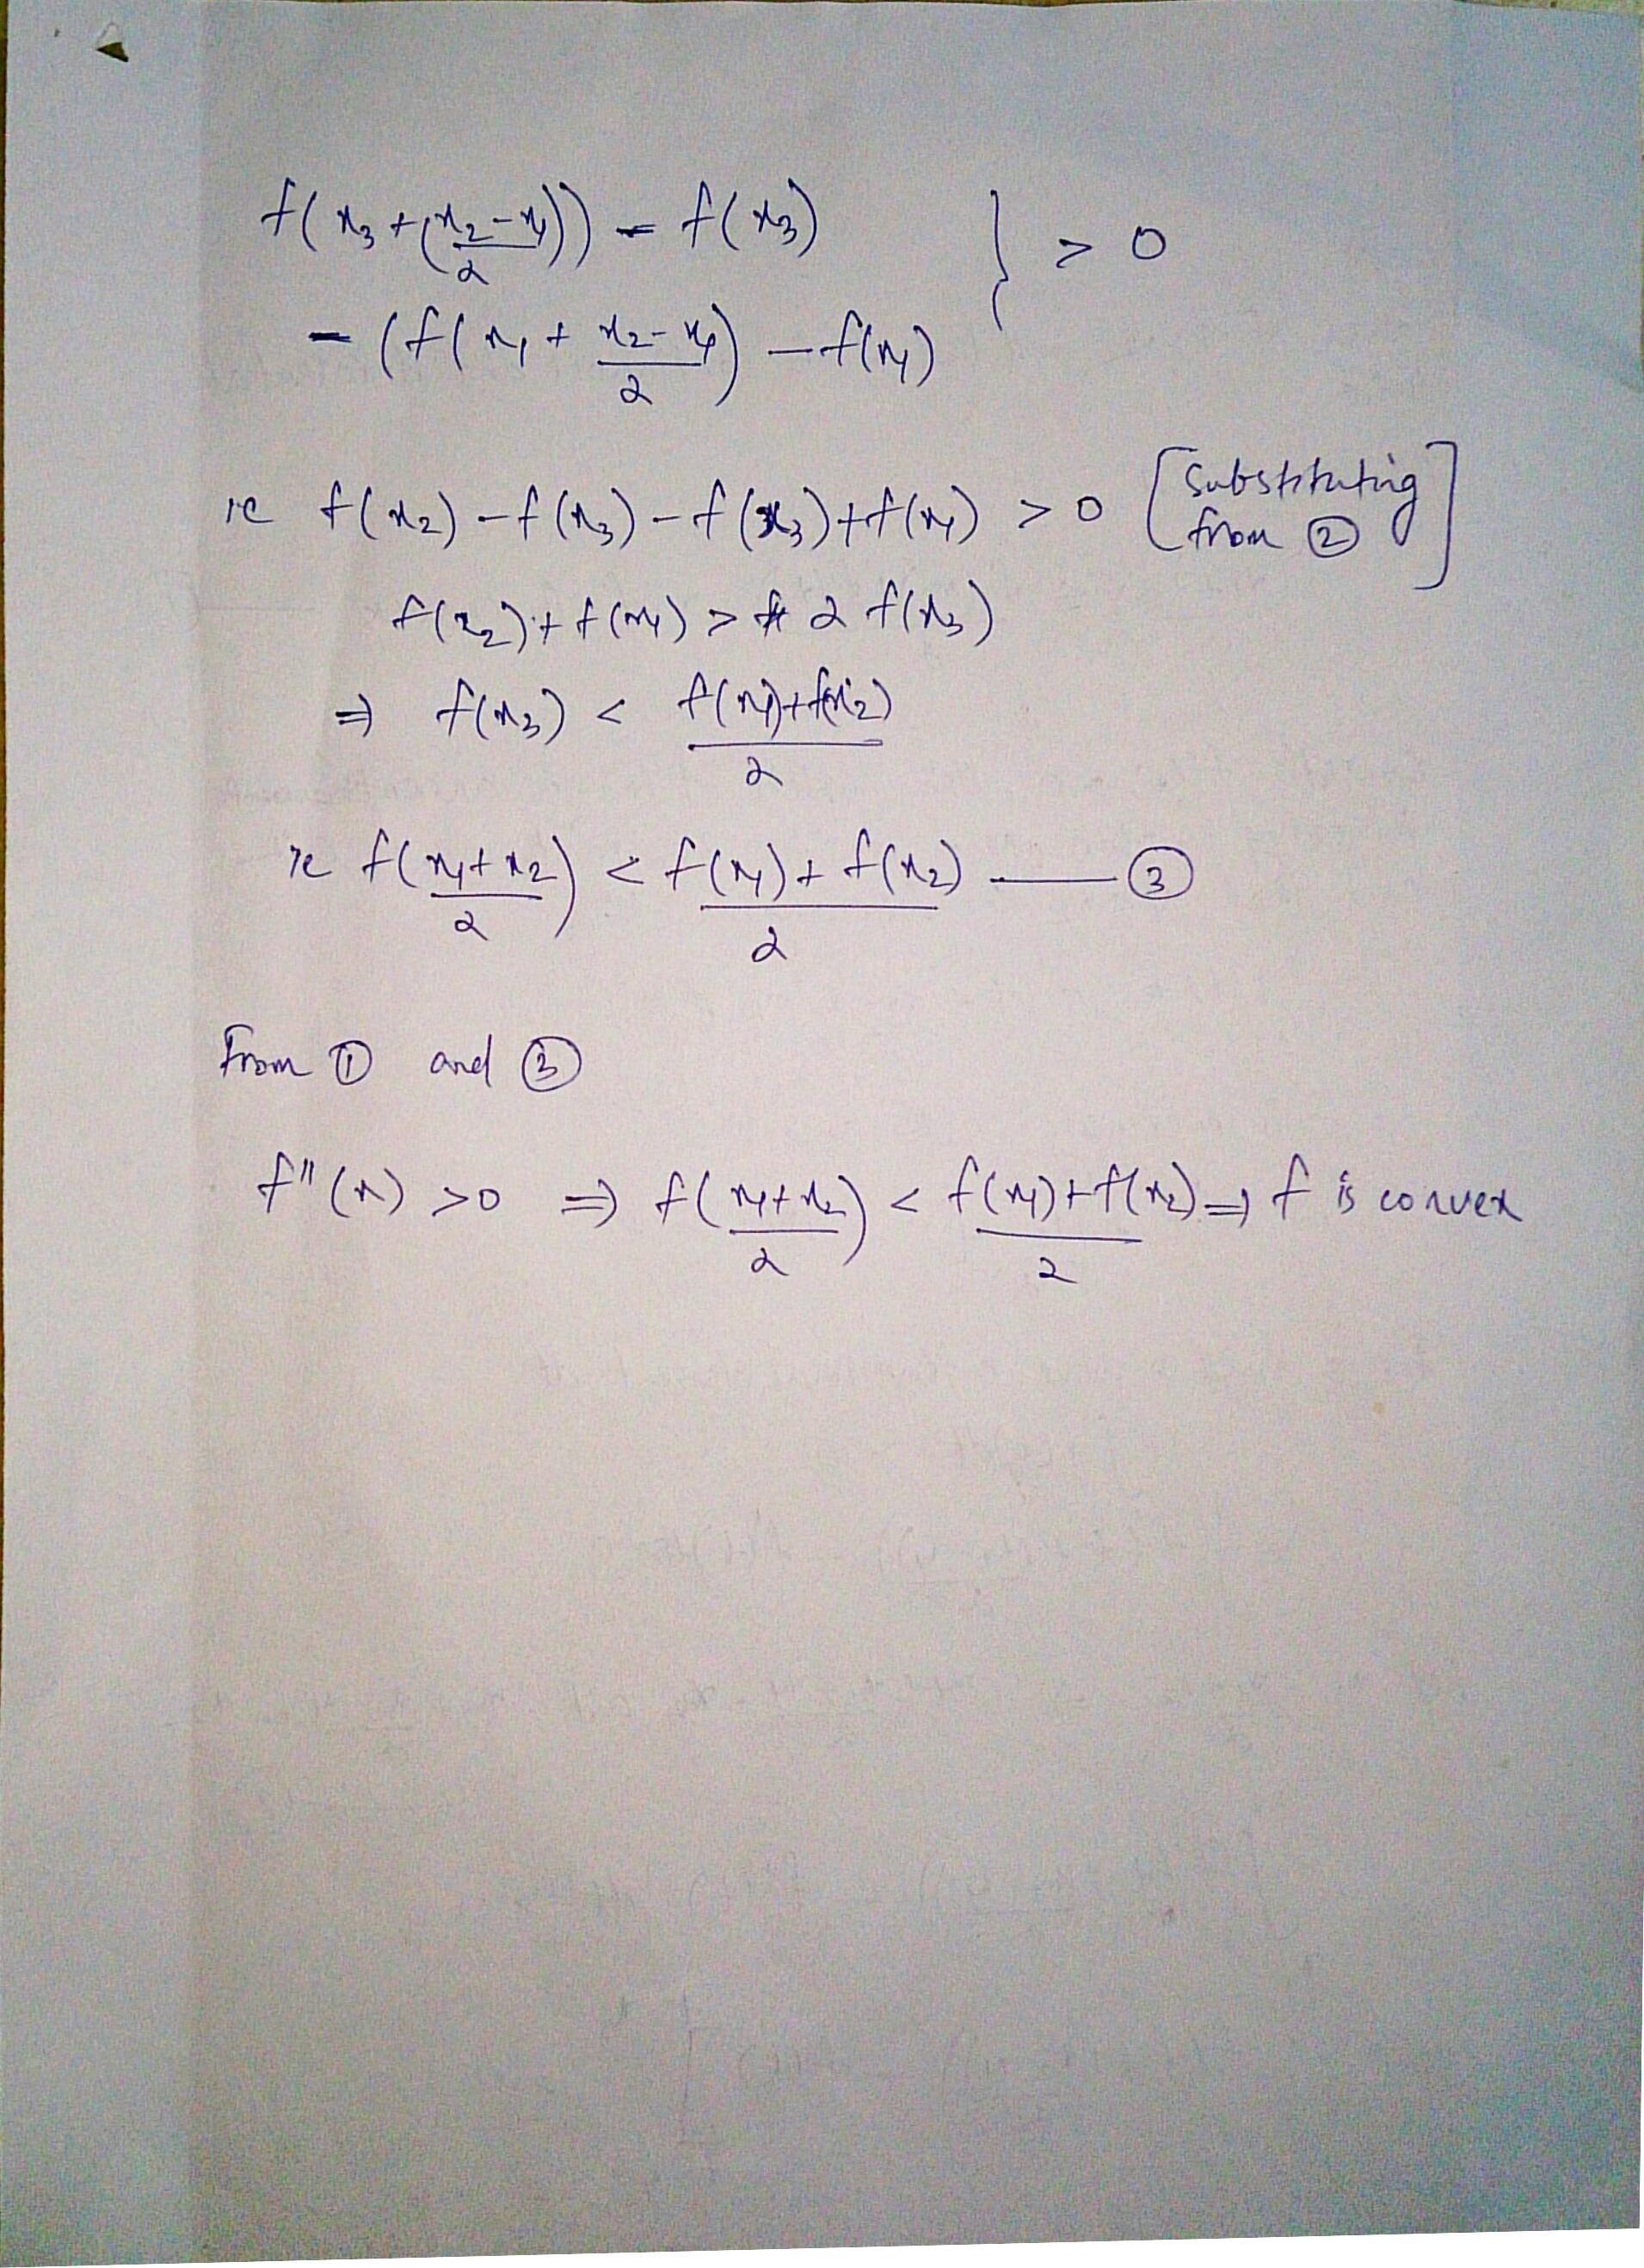 f(x₃+(x₂-x₁)/2)) - f(x₃) } > 0
- (f(x₁ + (x₂-x₁)/2) - f(x₁)
ie f(x₂) - f(x₃) - f(x₃) + f(x₁) > 0 [Substituting from ②]
f(x₂) + f(x₁) > 2 f(x₃)
⇒ f(x₃) < (f(x₁)+f(x₂))/2
ie f((x₁+x₂)/2) < (f(x₁) + f(x₂))/2 —— ③
From ① and ③
f"(x) >0 ⇒ f((x₁+x₂)/2) < (f(x₁)+f(x₂))/2 ⇒ f is convex